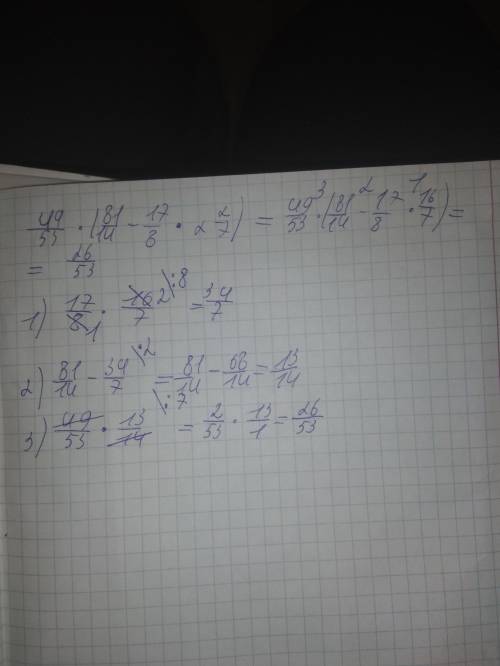 49/53 · (81/14 - 17/8 · 2 2/7) = 49/53 ·³ (81/14 -² 17/8 ·¹ 16/7) =
= 26/53
1) 17/8 1 · 16/7 2 \:8 = 34/7
2) 81/14 - 34/7 \·2 = 81/14 - 68/14 = 13/14
3) 49/53 · 13/14 \:7 = 2/53 · 13/1 = 26/53